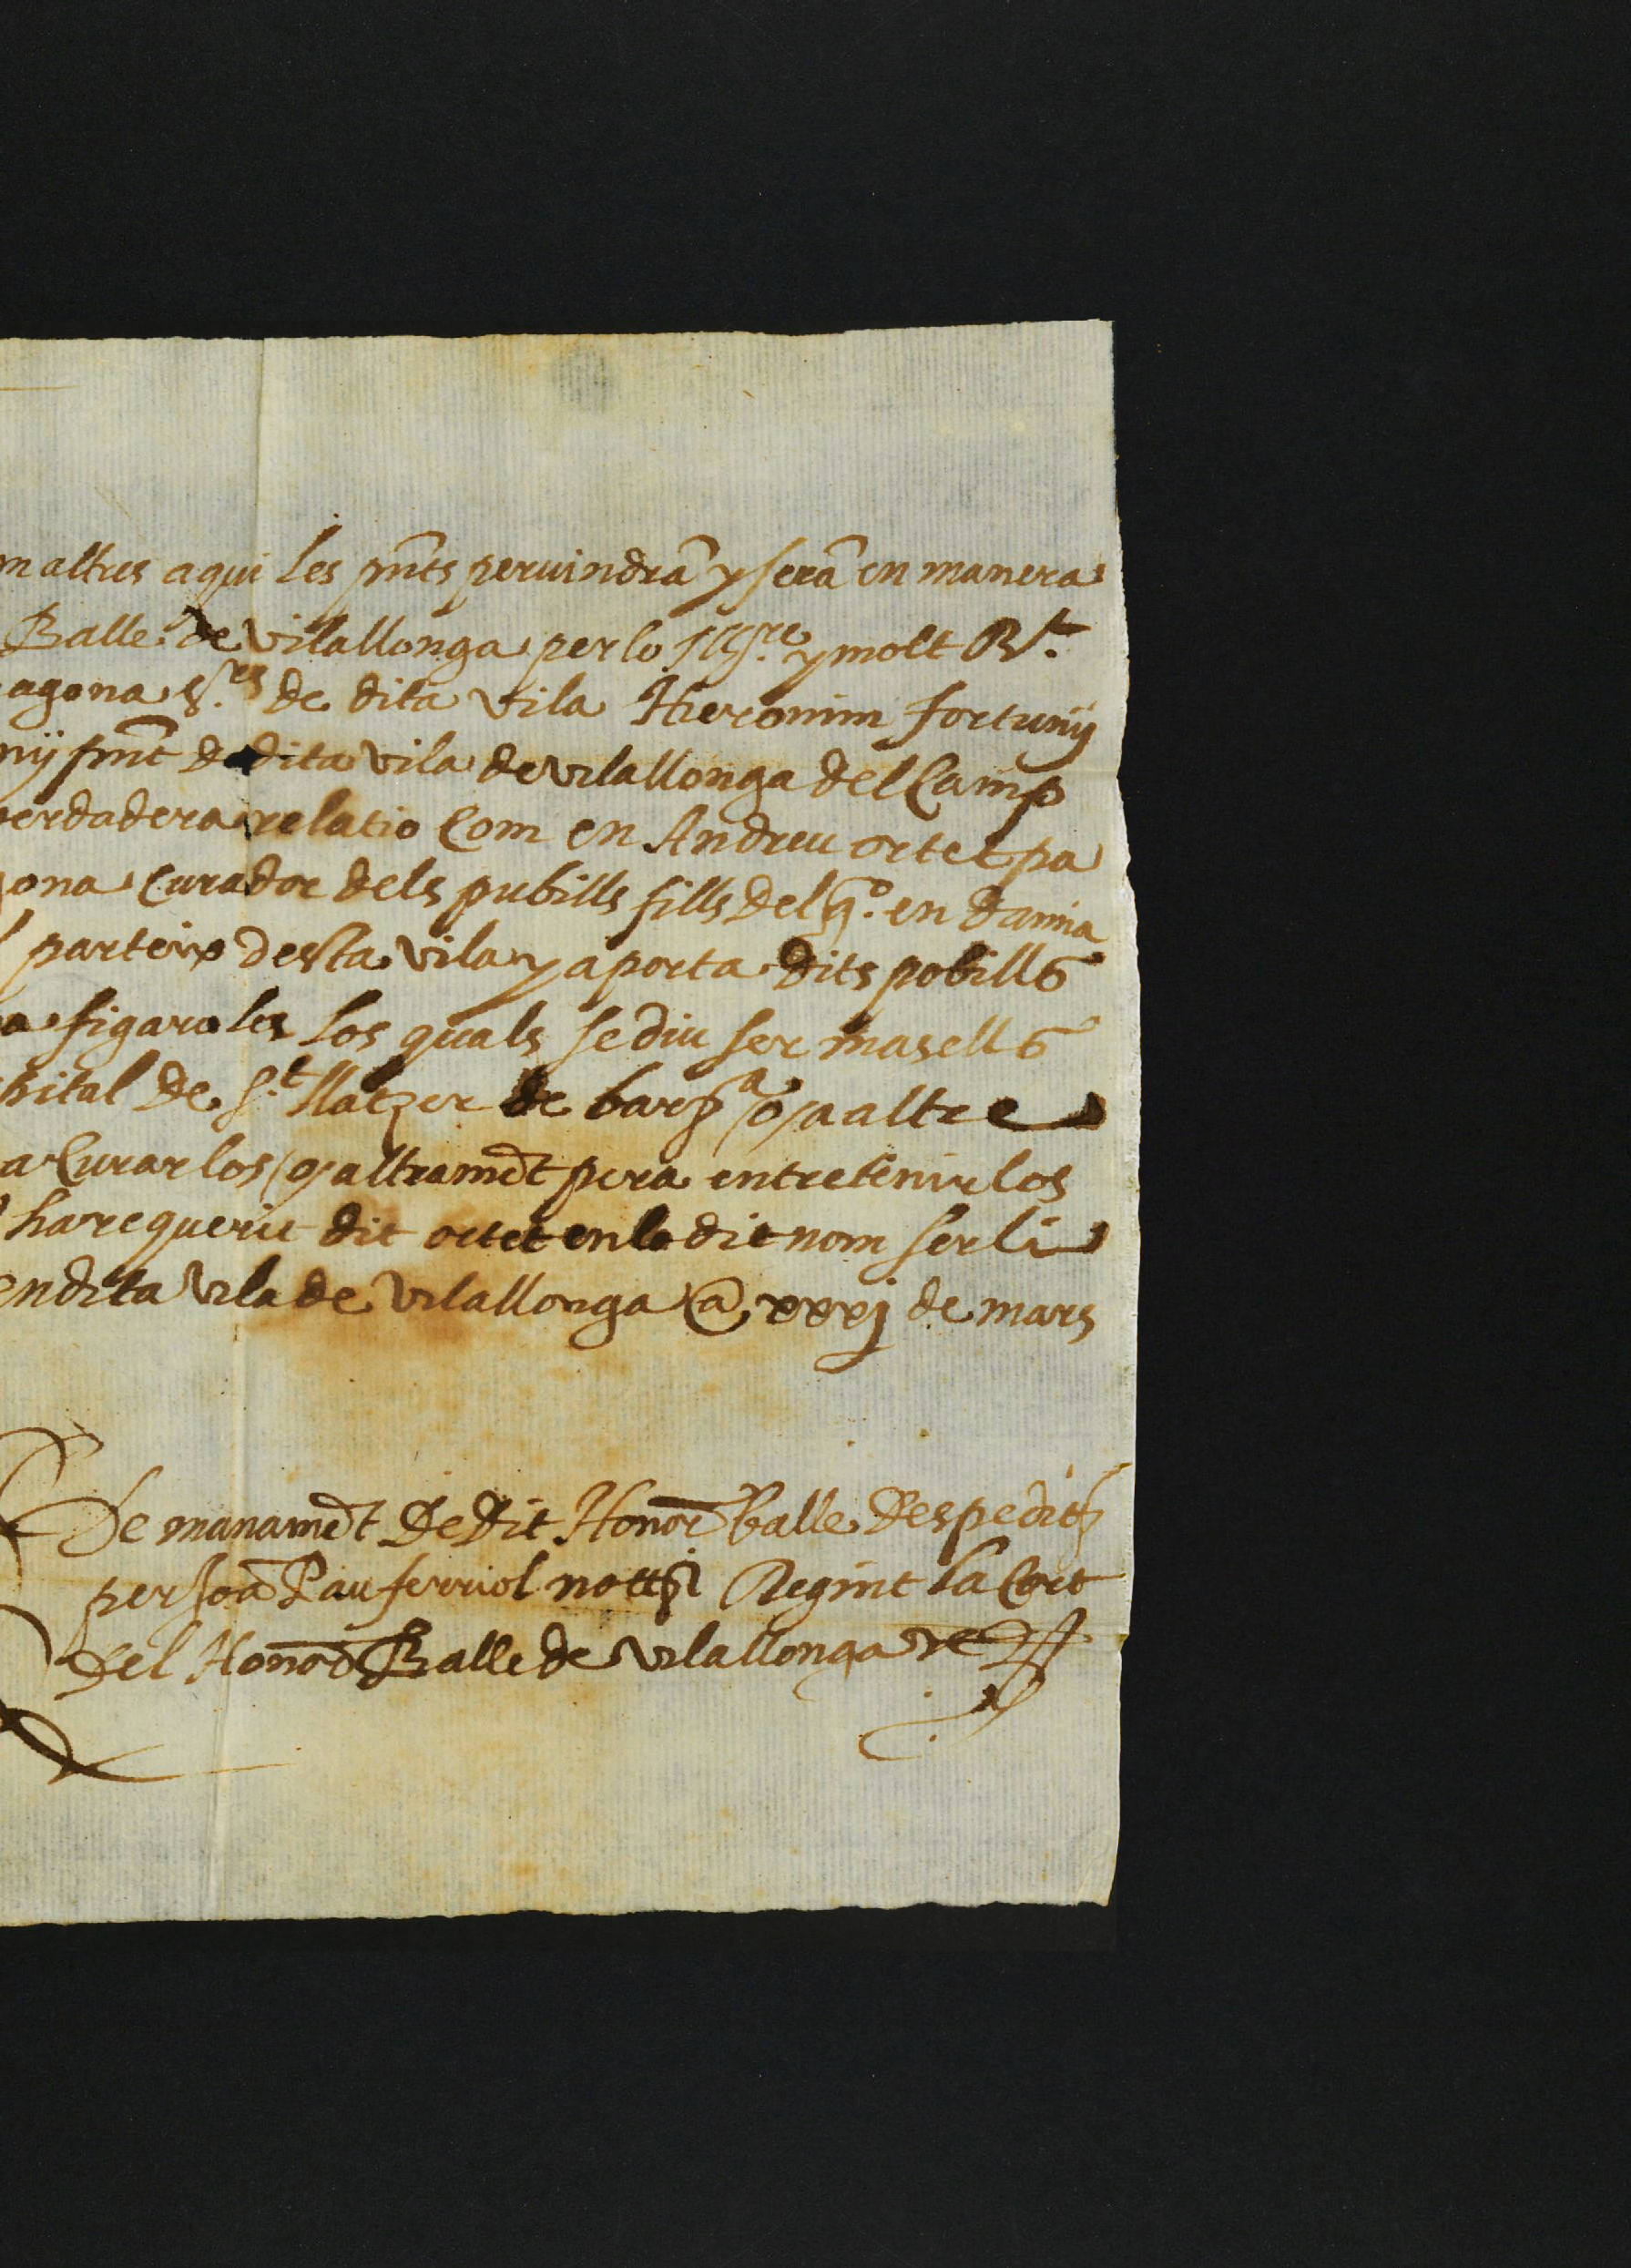 altres aqui les pnts pervindrā y serā en manera
Balle de Vilallonga per lo Illre. y molt Rt.
agona Srs de dita vila Hieronim fortuny
ny pnt de dita vila de vilallonga del Camp
verdadera relatio Com en Andreu ortet pa
ona Curador dels pubills fills del qº. en damia
parteix desta vila y aporta dits pobills
figaroles los quals se diu ser masells
pital de St. llatzer de barña o a altre
a Curar los o altramēt pera entretenir los
ha requerit dit ortet en lo dit nom ser li
en dita vila de vilallonga a xxxj de mars
De manamēt De Dit Honor Balle Despedit
per Joā Pau ferriol nott Regint la Cort
Del Honor Balle de vilallonga